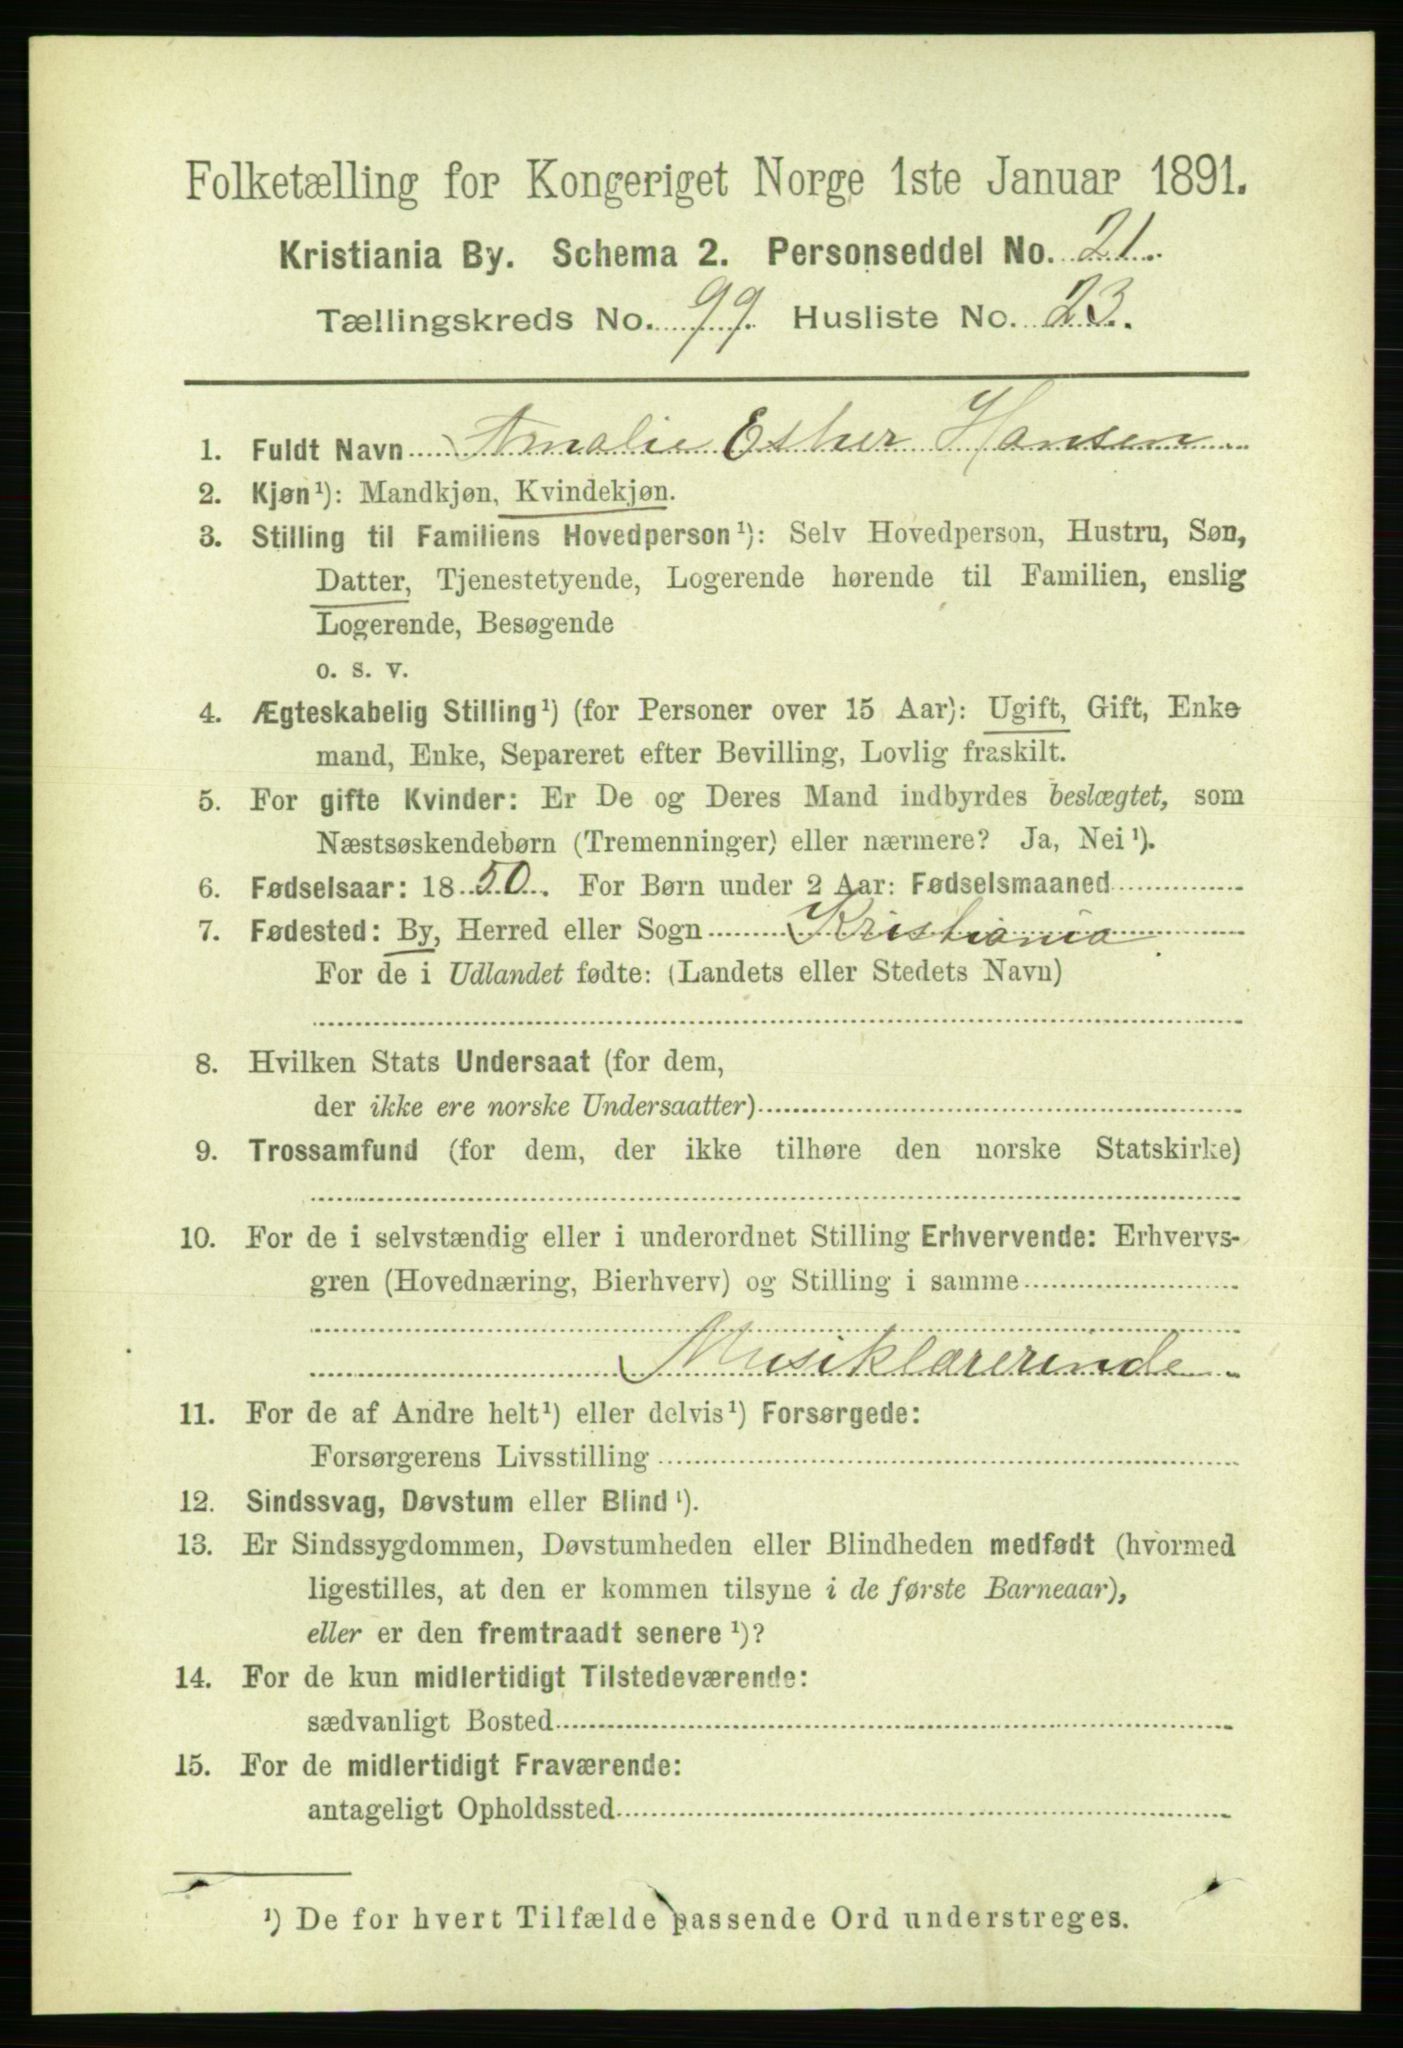 Folketælling for Kongeriget Norge 1ste Januar 1891.
Kristiania By. Schema 2. Personseddel No. 21.
Tællingskreds No. 99. Husliste No. 23.
1. Fuldt Navn Amalie Esther Hansen
2. Kjøn¹): Mandkjøn, Kvindekjøn.
3. Stilling til Familiens Hovedperson¹): Selv Hovedperson, Hustru, Søn,
Datter, Tjenestetyende, Logerende hørende til Familien, enslig
Logerende, Besøgende
o. s. v.
4. Ægteskabelig Stilling¹) (for Personer over 15 Aar): Ugift, Gift, Enke
mand, Enke, Separeret efter Bevilling, Lovlig fraskilt.
5. For gifte Kvinder: Er De og Deres Mand indbyrdes beslægtet, som
Næstsøskendebørn (Tremenninger) eller nærmere? Ja, Nei¹).
6. Fødselsaar: 1850. For Børn under 2 Aar: Fødselsmaaned
7. Fødested: By, Herred eller Sogn Kristiania
For de i Udlandet fødte: (Landets eller Stedets Navn)
8. Hvilken Stats Undersaat (for dem,
der ikke ere norske Undersaatter)
9. Trossamfund (for dem, der ikke tilhøre den norske Statskirke)
10. For de i selvstændig eller i underordnet Stilling Erhvervende: Erhvervs-
gren (Hovednæring, Bierhverv) og Stilling i samme
Musiklærerinde
11. For de af Andre helt¹) eller delvis¹) Forsørgede:
Forsørgerens Livsstilling
12. Sindssvag, Døvstum eller Blind¹).
13. Er Sindssygdommen, Døvstumheden eller Blindheden medfødt (hvormed
ligestilles, at den er kommen tilsyne i de første Barneaar),
eller er den fremtraadt senere¹)?
14. For de kun midlertidigt Tilstedeværende:
sædvanligt Bosted
15. For de midlertidigt Fraværende:
antageligt Opholdssted
¹) De for hvert Tilfælde passende Ord understreges.